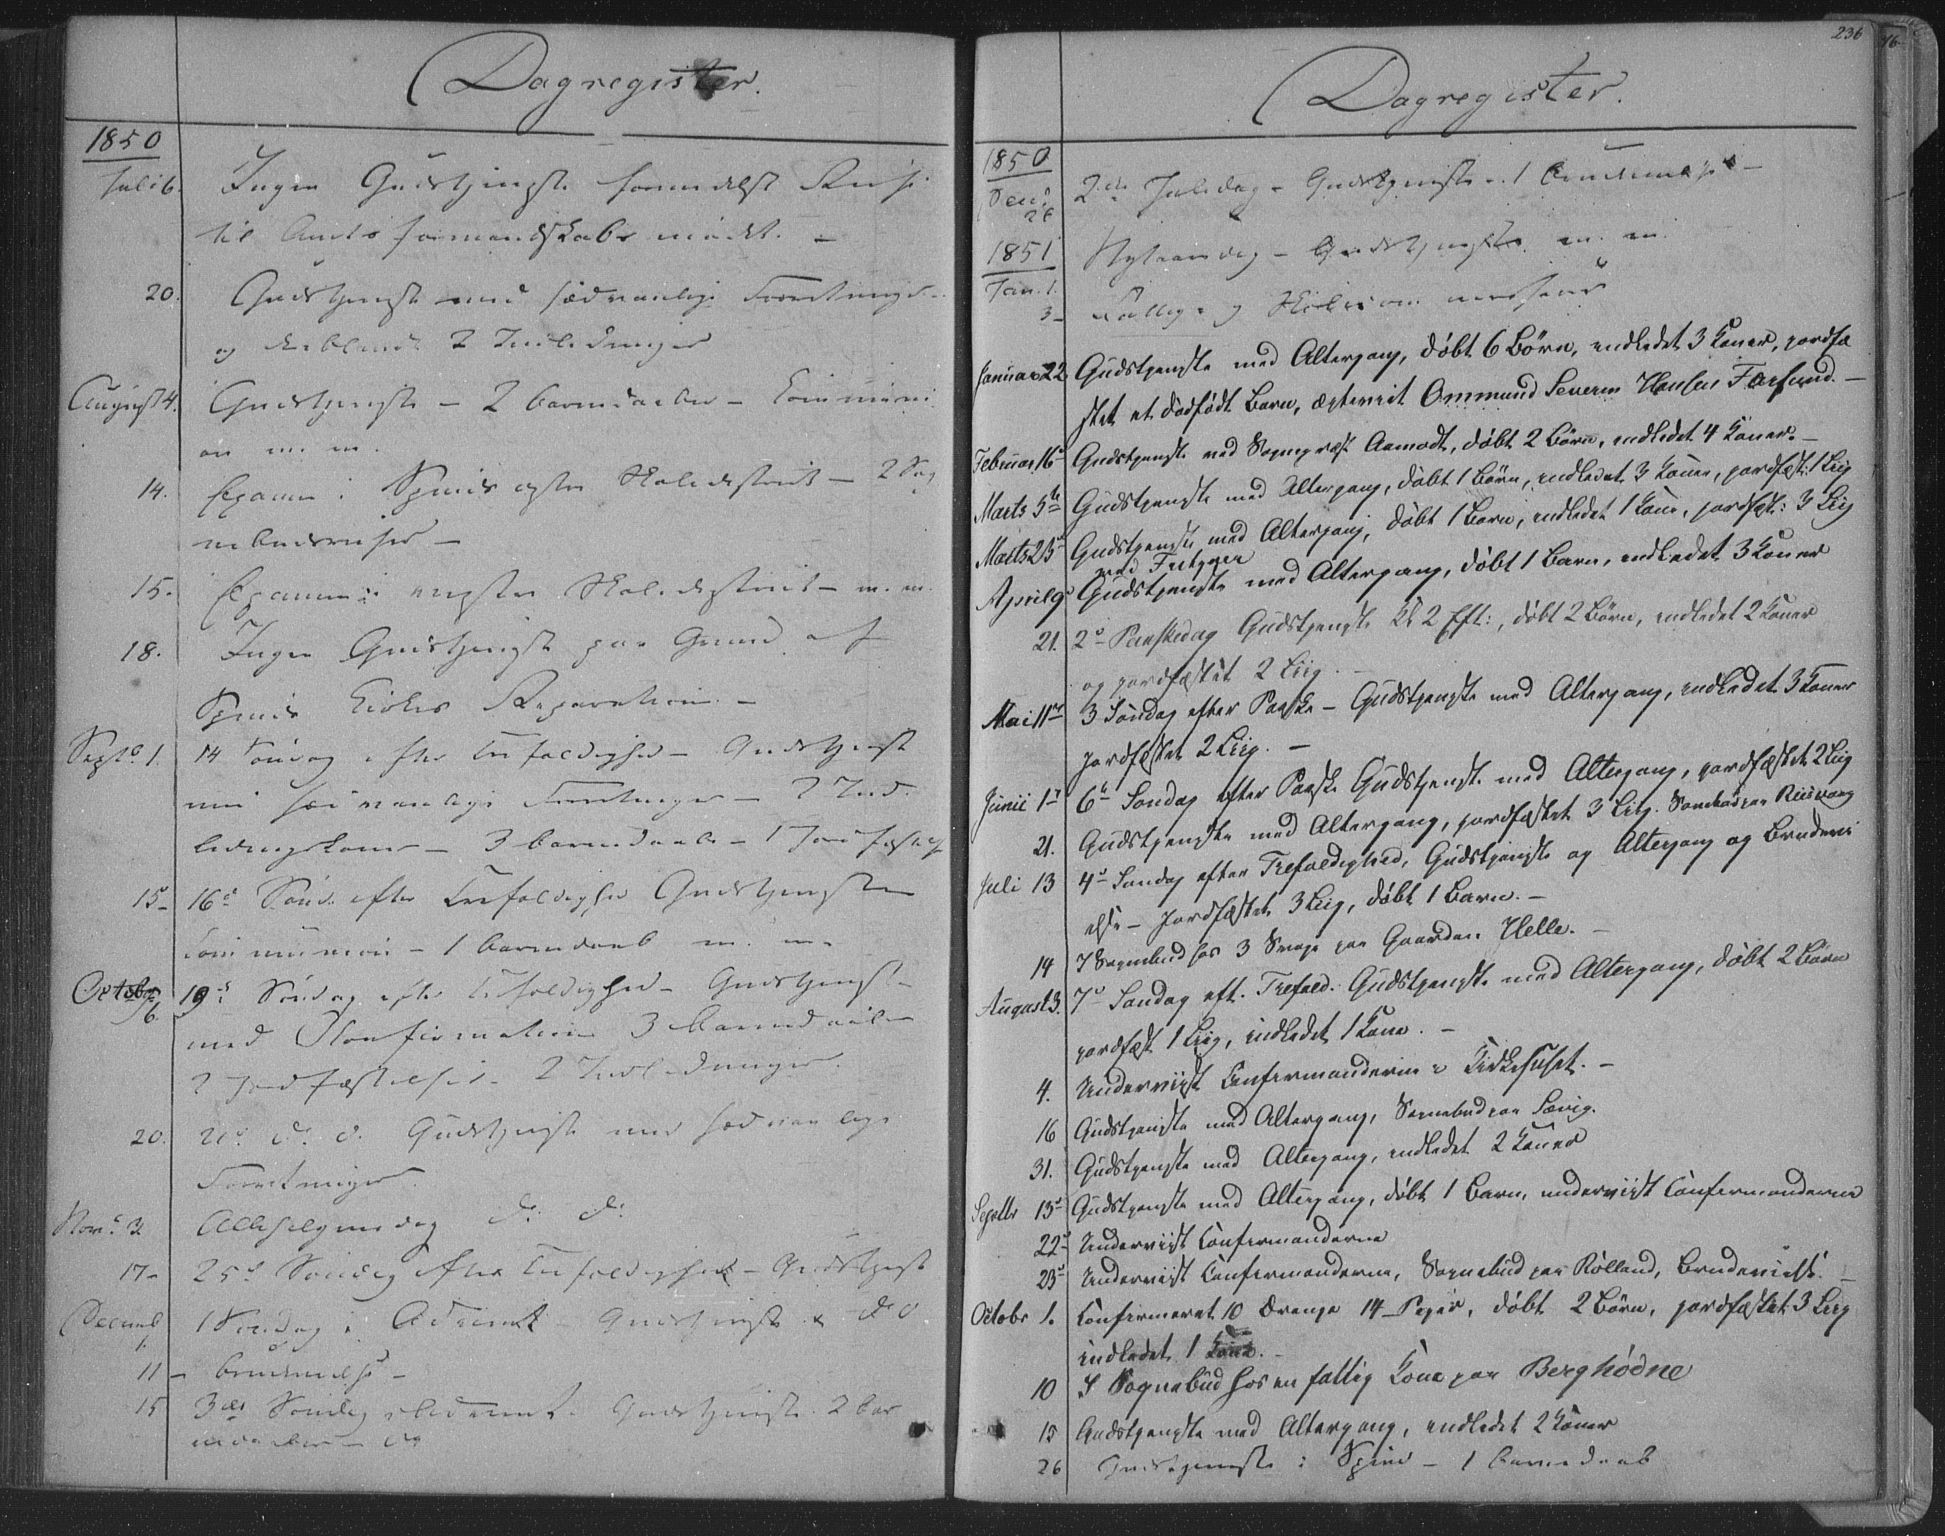 Dagregister.
1850
Juli 6. Ingen Gudstjeneste formedelst Reise
til Amtsformandskabsmødet. –
20. Gudstjeneste med sædvanlige Forretninger
og deriblandt 2 Indledninger
August 4. Gudstjeneste – 2 barnedaaber – Communi
on m. m.
14. Examen i Spinds Skoledistrict – 2 Sog
nebudsreiser –
15. Examen i Skoledistrict – m. m.
18. Ingen Gudstjeneste paa Grund af
Spinds Kirkes Reparation. –
Septb. 1. 14 Søndag efter Trefoldighed – Gudstjenest
med sædvanlige Forretninger – 2 Ind
ledningskoner – 3 barnedaabe – 1 Jordfæstelse
15 16de Sønd. efter Trefoldighed Gudstjeneste
Communion – 1 barnedaab m. m.
Octobr 6. 19de Søndag efter Trefoldighed – Gudstjeneste
med Konfirmation 3 barnedaabe
2 Jordfæstelser – 2 Indledninger.
20. 21de d. d. Gudstjeneste med sædvanlige
Forretninger.
Novbr 3. Allehelgensdag do do
17 – 25de Søndag efter Trefoldighed – Gudstjenest
Decemb 1. 1 Søndag i Advent – Gudstjeneste do
11 – brudevielse –
15 3die Søndag i Advent. Gudstjeneste. 2 bar
nedaaber –
236
Dagregister.
1850
Decb 26 2den Juledag – Gudstjeneste – 1 brudevielse –
1851
Jan. 1. Nytaarsdag – Gudstjeneste m. m.
3 – Fattig- og
Januar 22 Gudstjenste med Altergang, døbt 6 Børn, indledet 3 Koner, jordfæ
stet et dødfødt Barn, ægteviet Ommund Severin Hansen Farsund. –
Februar 16de Gudstjenste ved Sogneprest Aamodt, døbt 2 Børn, indledet 4 Koner. –
Marts 5te Gudstjenste med Altergang, døbt 1 Børn, indledet 3 Koner, jordfæst: 1 Liig
Marts 23de Gudstjenste med Altergang, døbt 1 Barn, indledet 1 Kone, jordfæst: 3 Liig
April 9de Gudstjenste med Altergang, døbt 1 Barn, indledet 3 Koner
21. 2den Paaskedag Gudstjenste Kl 2 Eft:, døbt 2 Børn, indledet 2 Koner
og jordfæstet 2 Liig. –
Mai 11te 3 Søndag efter Paaske – Gudstjenste med Altergang, indledet 3 Koner
Jordfæstet 2 Liig. –
Junii 1ste 6te Søndag efter Paaske Gudstjenste med Altergang, jordfæstet 2 Liig
21. Gudstjenste med Altergang, jordfæstet 3 Liig. Sognebud paa Riisvaag
Juli 13 4de Søndag efter Trefoldighed, Gudstjenste og Altergang og Brudevi
else – Jordfæstet 3 Liig, døbt 1 Barn. –
14 I Sognebud hos 3 Syge paa Gaarden Helle. –
August 3. 7de Søndag eft. Trefold. Gudstjenste med Altergang, døbt 2 Børn
jordfæst 1 Liig, indledet 1 Kone. –
4. Underviist Confirmanderne i Kirkehuset. –
16 Gudstjenste med Altergang, Sognebud paa Sævig.
31. Gudstjenste med Altergang, indledet 2 Koner
Septbr 15de Gudstjenste med Altergang, døbt 1 Barn, underviist Confirmanderne
22de Underviist Confirmanderne
23de Underviist Confirmanderne, Sognebud paa Rølland, Brudevielse. –
Octobr 1. Confirmeret 10 Drenge 14 Piger, døbt 2 Børn, jordfæstet 3 Liig
indledet 1 Kone. –
10 I Sognebud hos en fattig Kone paa Berghødne
15 Gudstjenste med Altergang, indledet 2 Koner
26 Gudstjeneste i Spind – 1 barnedaab